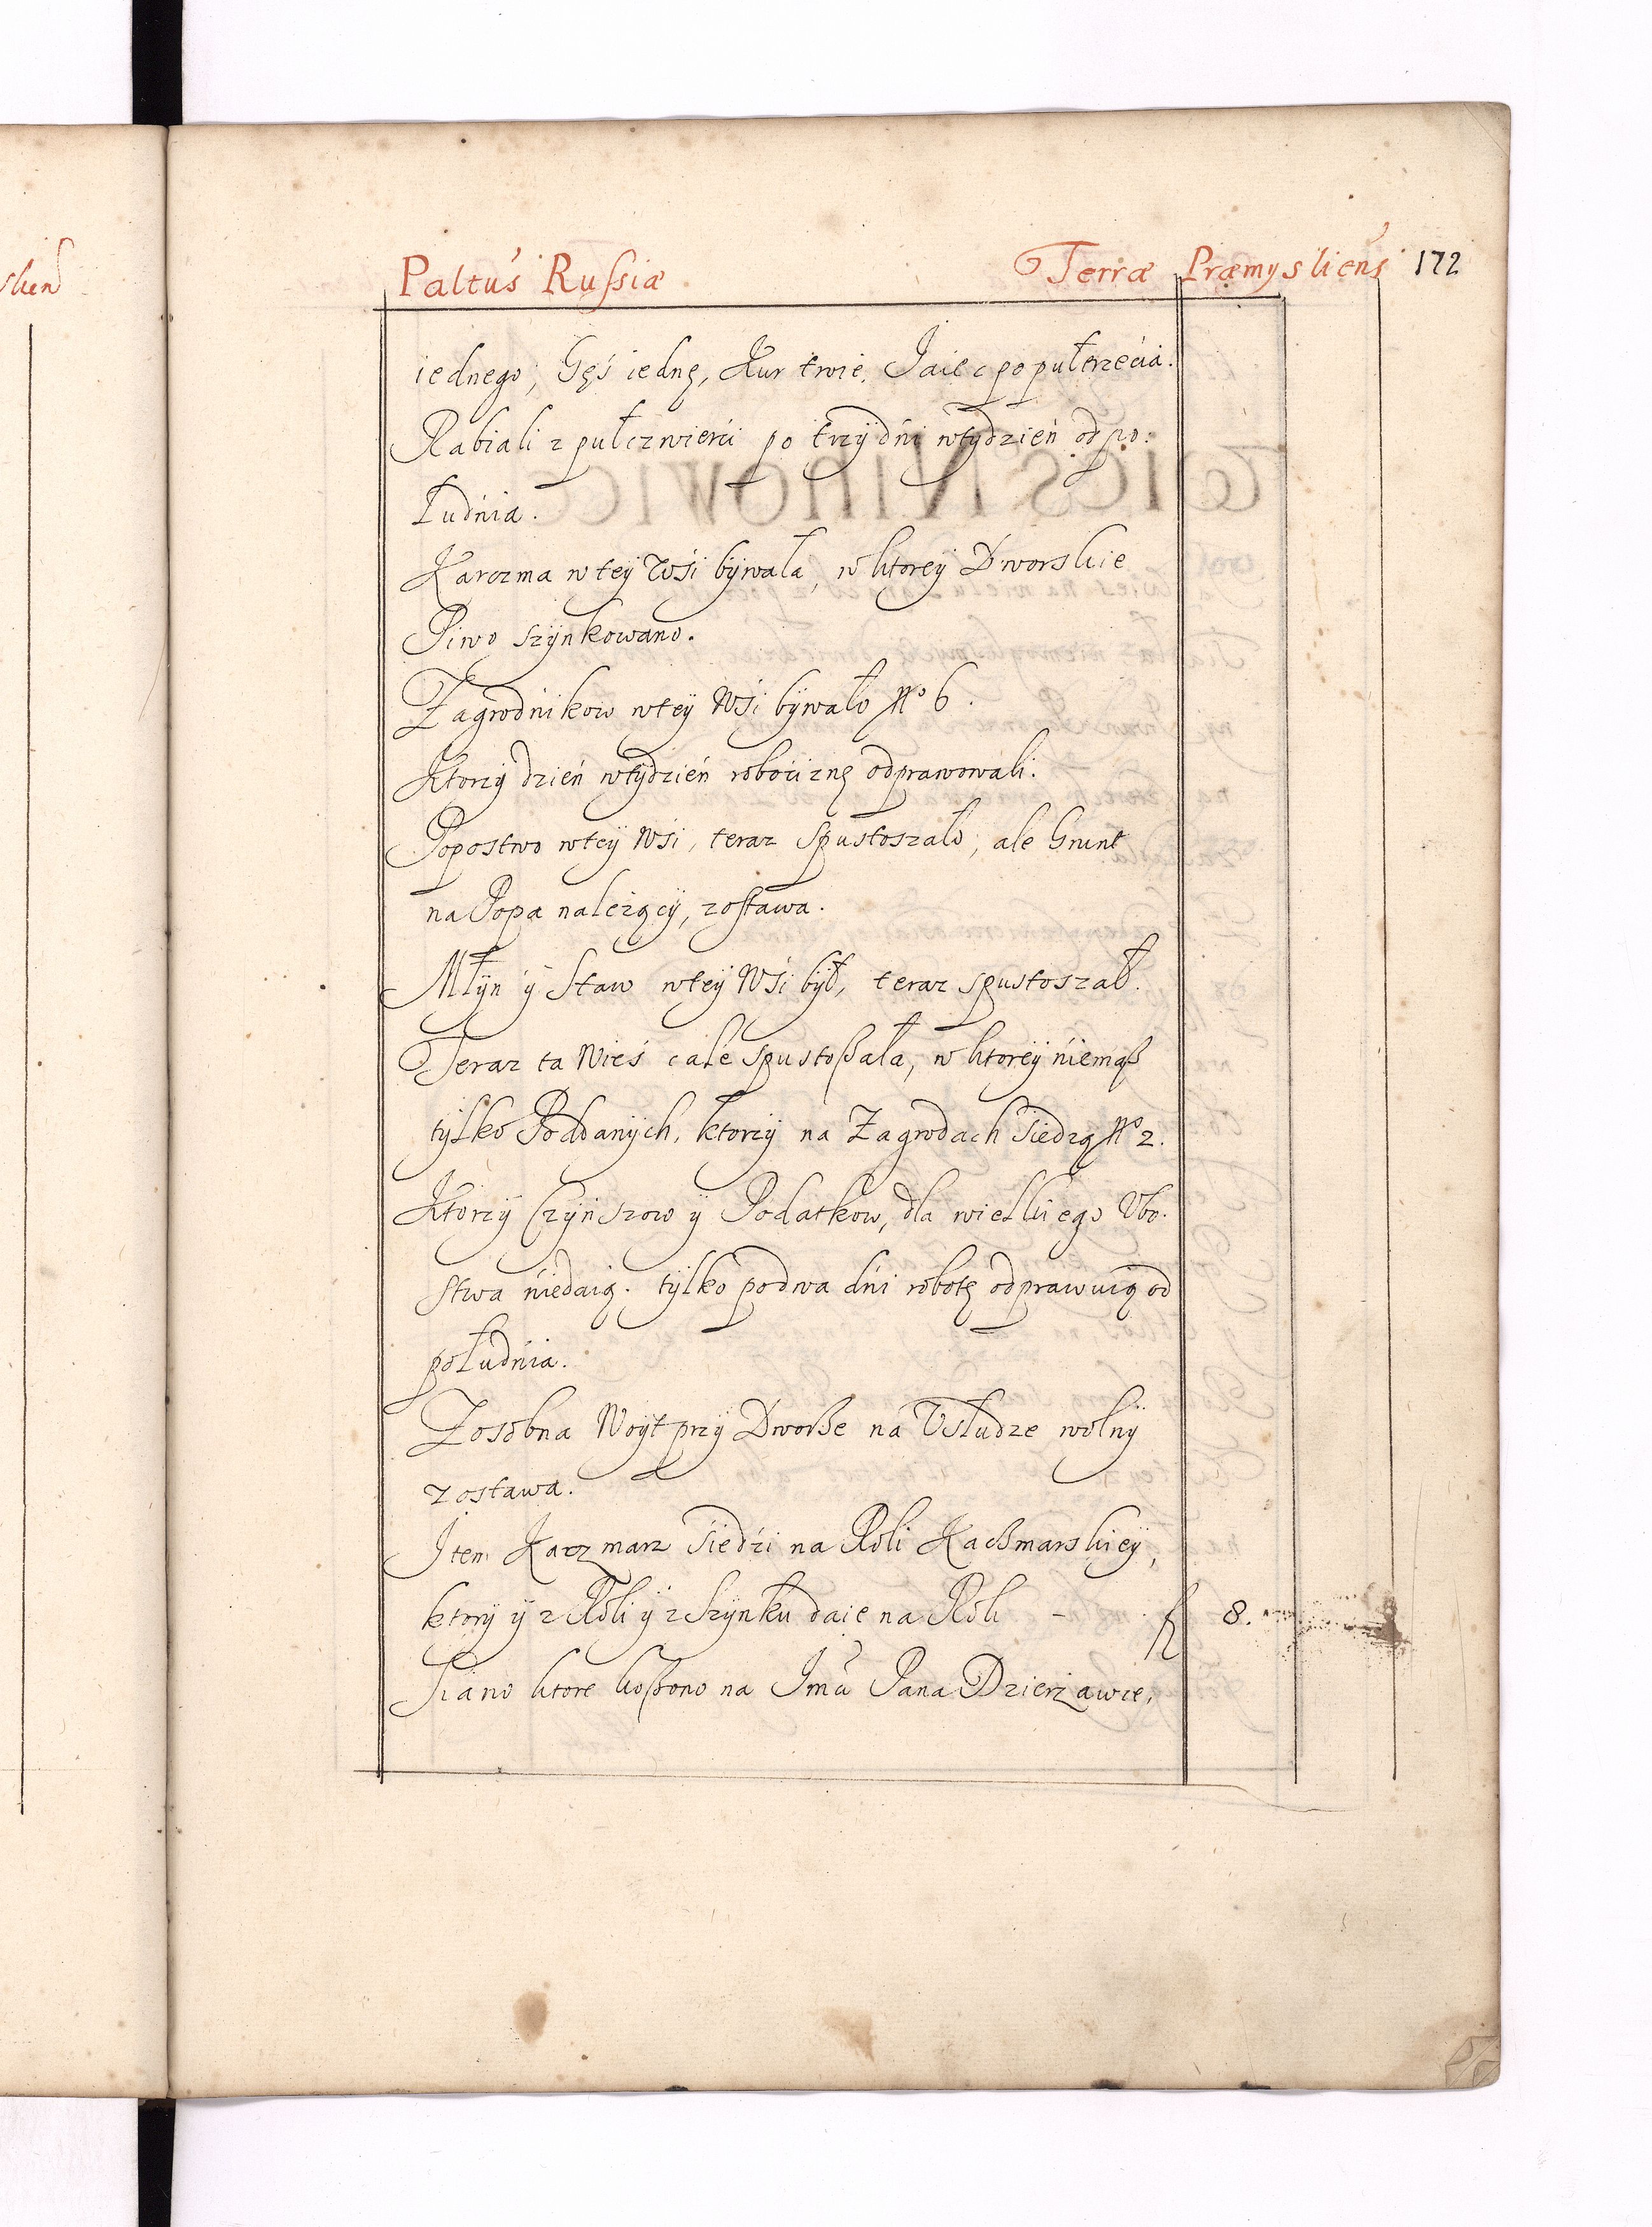 Paltus Russiæ Terræ Præmysliens 172
iednego, Gęś iednę, Kur troie. Jaiec po pułtrzecia.
Rabiali z pułczwierci po trzÿ dńi w tydzień od po:
łudńia.
Karczma w teÿ Wśi bÿwała, w ktoreÿ Dworskie
Piwo szÿnkowano.
Zagrodńikow w teÿ Wśi bÿwało No 6.
Ktorzÿ dzień w tÿdzień robociznę odprawowali.
Popostwo w teÿ Wśi, teraz spustoszało, ale Grunt
na Popa należącÿ, zostawa.
Młÿn ÿ Staw w teÿ Wśi bÿł, teraz spustoszał.
Teraz ta Wieś cale spustoßała, w ktoreÿ ńiemaß
tÿlko Poddanÿch, ktorzÿ na Zagrodach śiedzą No 2.
Ktorzÿ Czÿńszow ÿ Podatkow, dla wielkiego Vbo:
stwa ńiedaią. tÿlko po dwa dńi robotę odprawuią od
połudńia.
Zosobna Woÿt przÿ Dworße na Vsłudze wolnÿ
zostawa.
Item Karczmarz śiedźi na Roli Kaczmarskieÿ,
ktorÿ ÿ z Roli ÿ z Szÿnku daie na Rok - fl 8.
Siano ktore koßono na Jmci Pana Dzierzawce,